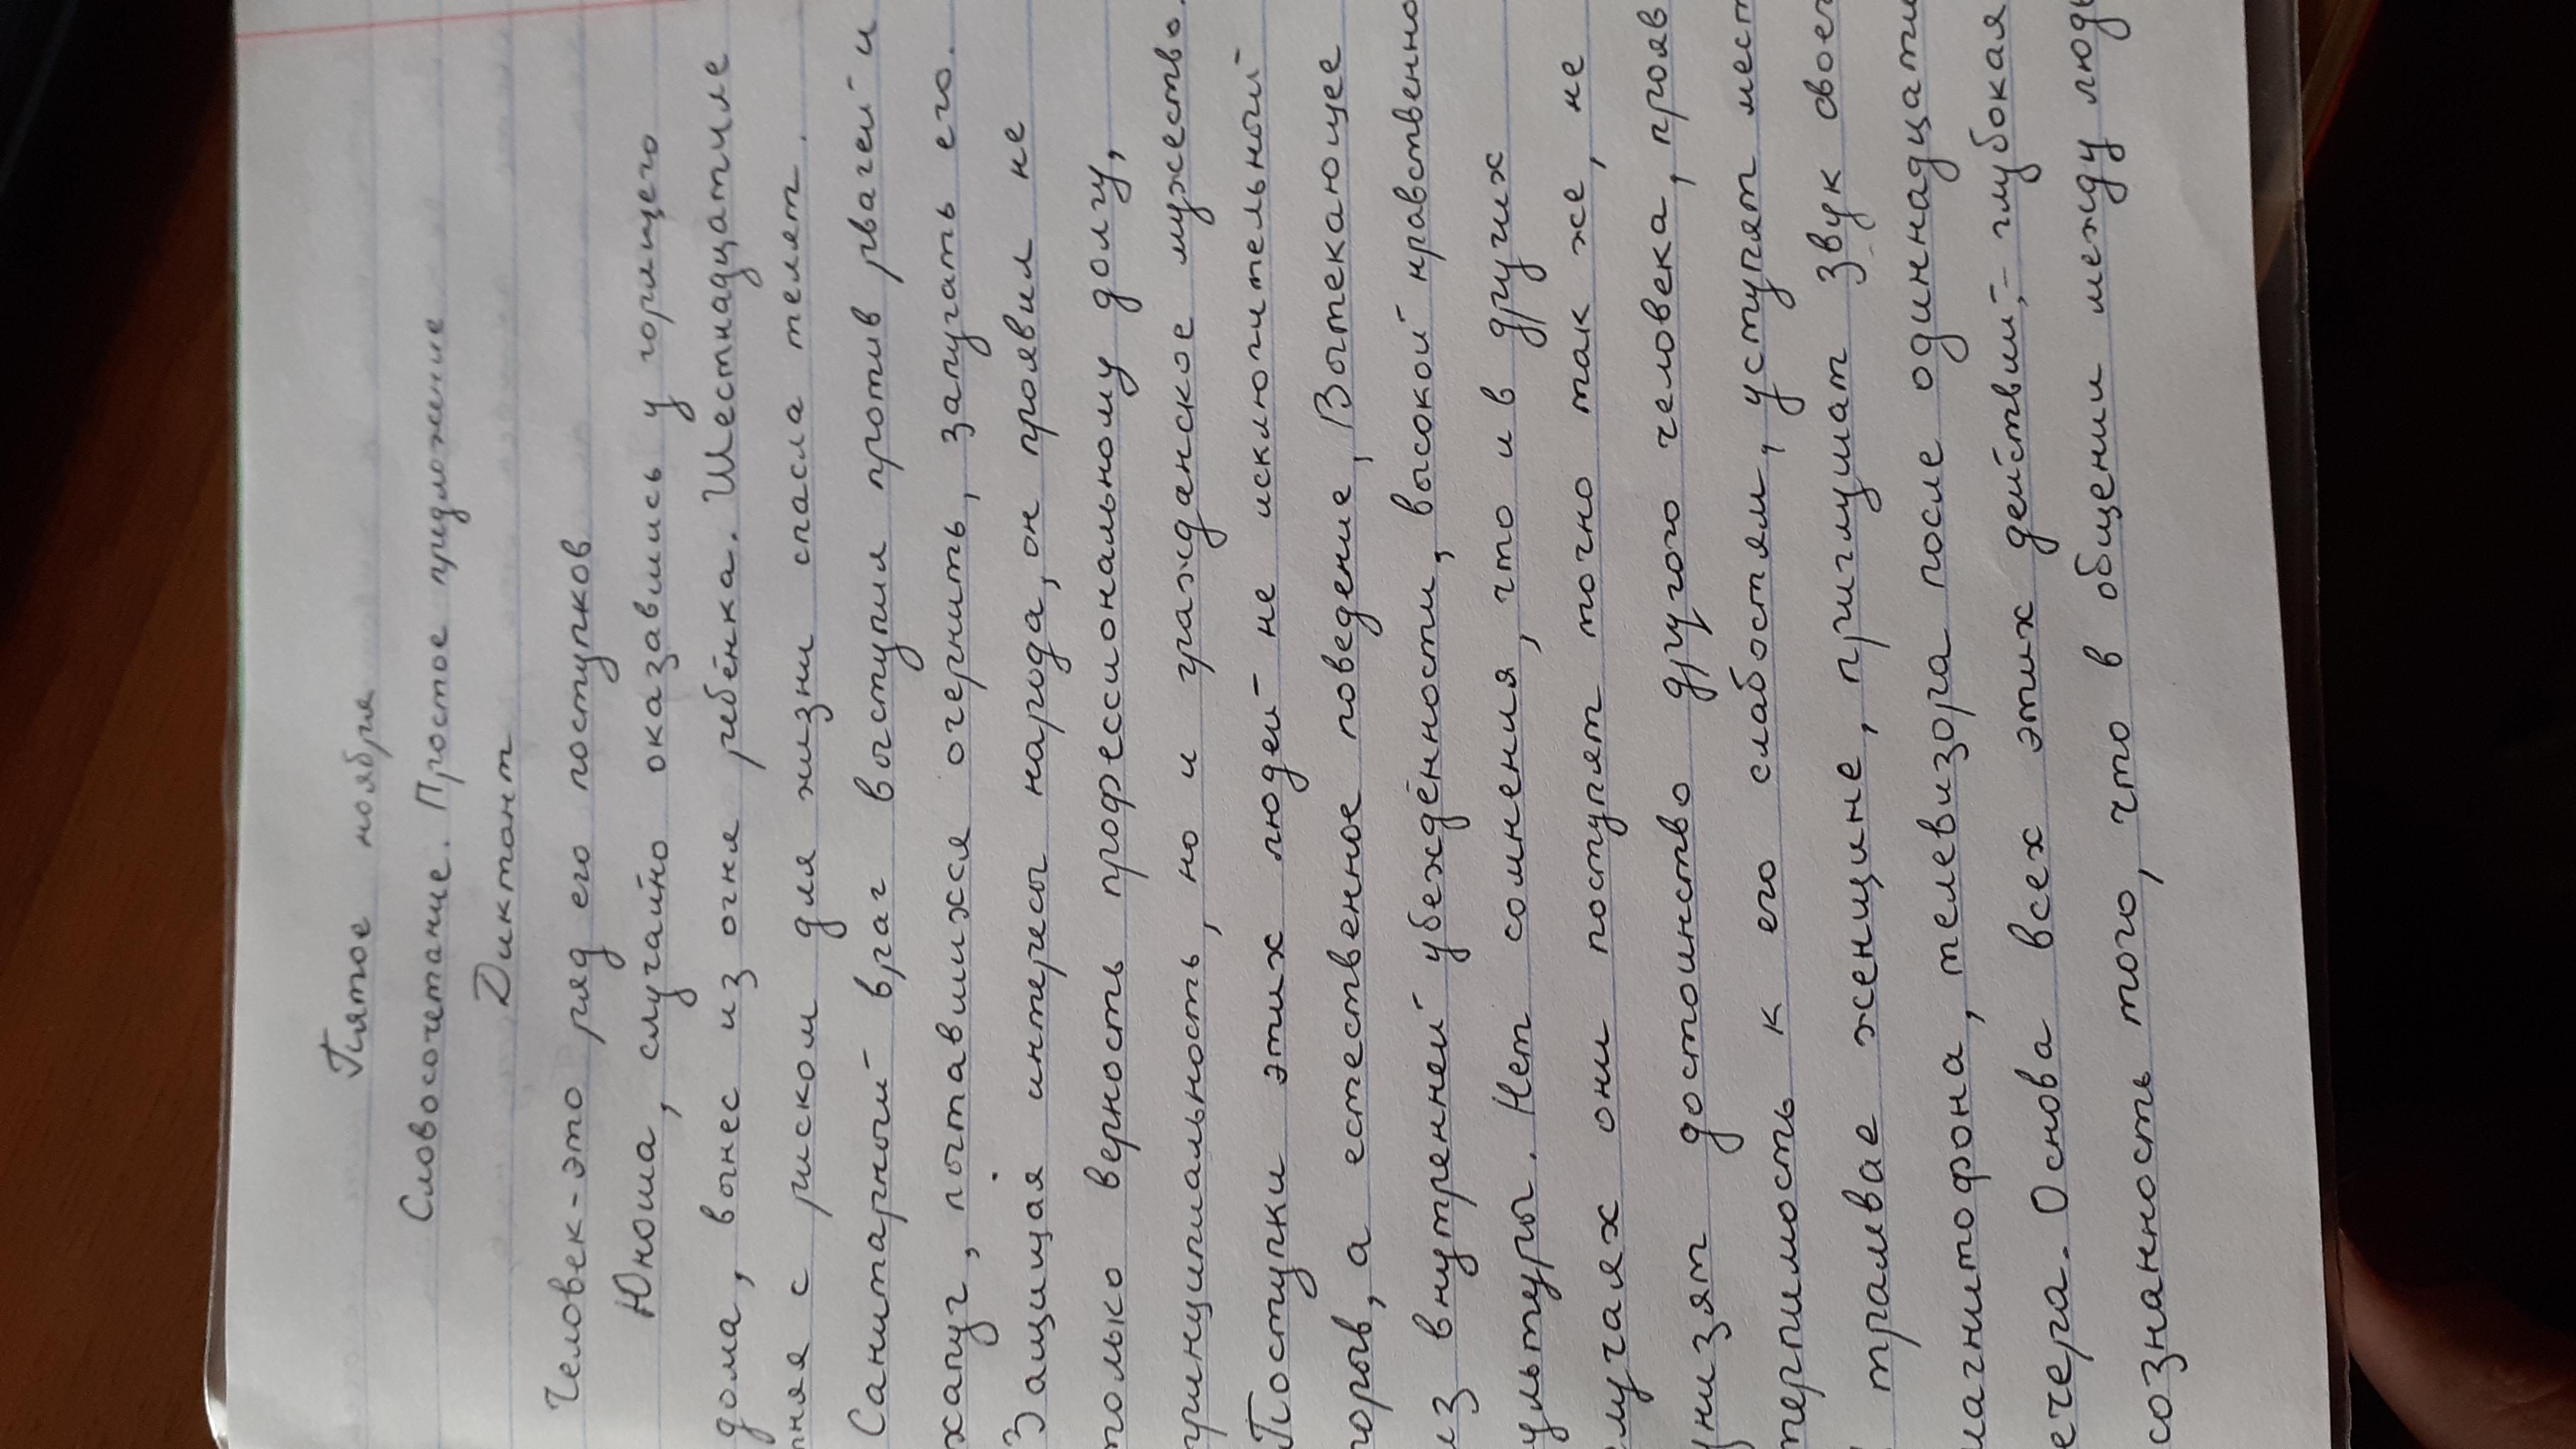 Пятое ноября
Словосочетание. Простое предложение
Диктант
Человек-это ряд его поступков
Юноша, случайно оказавшись у горящего
дома, вынес из огня ребёнка. Шестнадцатиле
тняя с риском для жизни спасла телят.
Санитарный враг выступил против рвачей и
хапуг, пытавшихся очернить, запугать его.
Защищая интересы народа, он проявил не
только верность профессиональному долгу,
принципиальность, но и гражданское мужество.
Поступки этих людей - не исключительный
порыв, а естественное поведение, Вытекающее
из внутренней убеждённости, высокой нравственно
ультуры. Нет сомнения, что и в других
лучаях они поступят точно так же, не
унизят достоинство другого человека, прояв
терпимость к его слабостям, уступят мест
трамвае женщине, приглушат звук своег
магнитофона, телевизора после одиннадцати
ечера. Основа всех этих действий, - глубокая
сознанность того, что в общении между людь